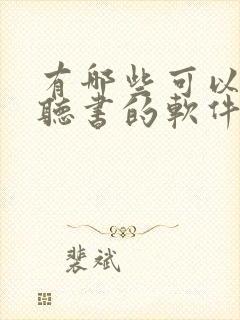 有哪些可以
聽書的軟件
裴斌